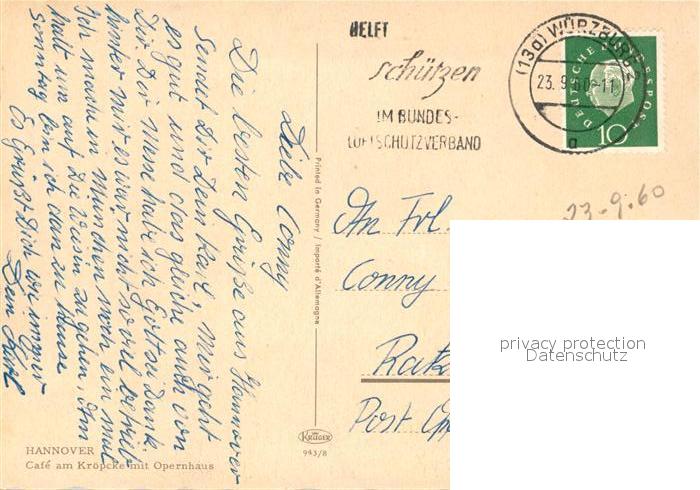 Liebe Conny
Die besten Grüße aus Hannover
sendet Dir Dein Karl, mir geht
es gut und das gleiche auch von
Dir. Die Messe habe ich Gott sei Dank
hinter mir es war nicht so viel betrieb
Ich mache in München noch ein mal
halt um auf die Wiesn zu gehen. Am
Sonntag bin ich dann zu Hause
Es Grüßt Dich wie immer
Dein Karl
HANNOVER
Café am Kröpcke mit Opernhaus
Printed in Germany / Importé d'Allemagne
KRÜGER
943/8
HELFT
schützen
IM BUNDES-
LUFTSCHUTZVERBAND
(13a) WÜRZBURG 2
23.9.60-11
a
DEUTSCHE BUNDESPOST
10
23-9-60
An Frl.
Conny
Post
privacy protection
Datenschutz